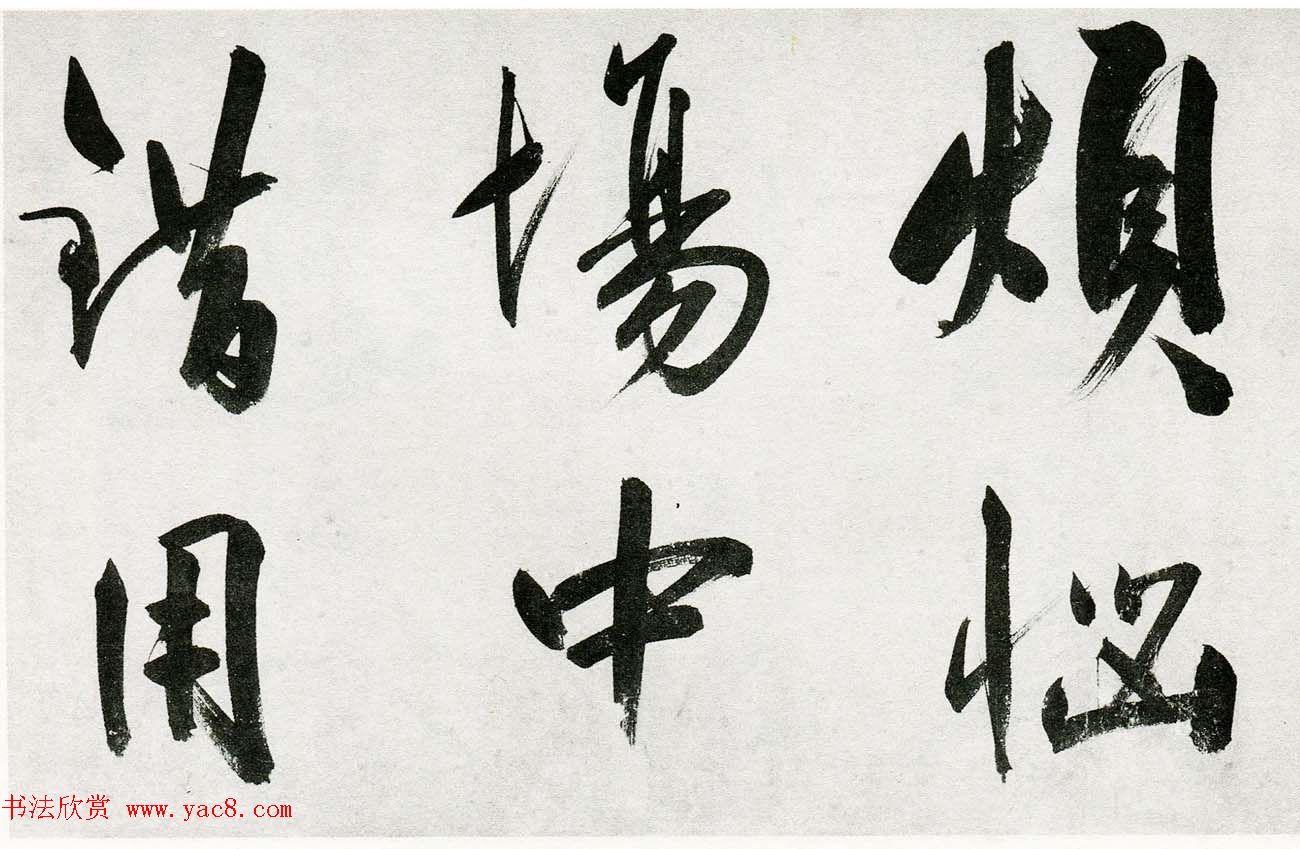 煩惱
場中
錯用
书法欣赏 www.yac8.com